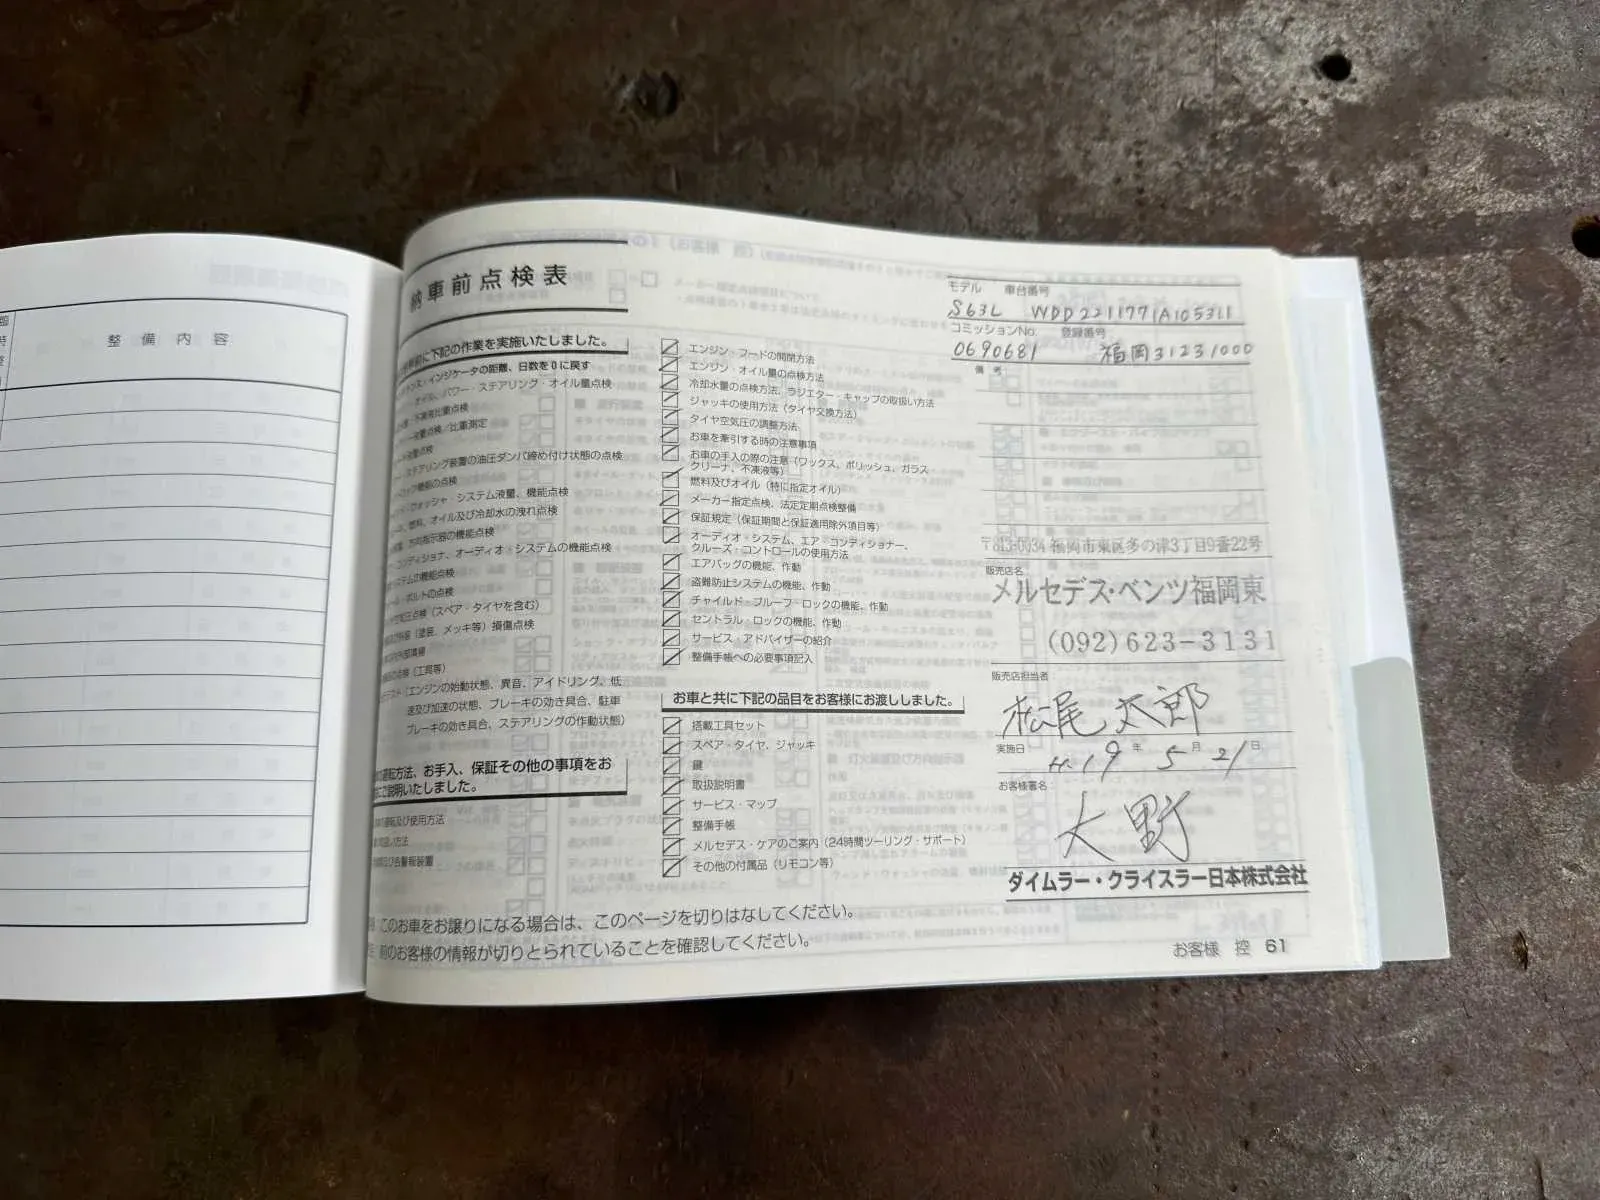 整備内容
納車前点検表
前に下記の作業を実施いたしました。
ンス・インジケータの距離、日数を0に戻す
オイル、パワー・ステアリング・オイル量点検
量点検／比重測定
ステアリング装置の油圧ダンパ締め付け状態の点検
ロック機能の点検
ウォッシャ・システム液量、機能点検
燃料、オイル及び冷却水の洩れ点検
方向指示器の機能点検
コンディショナ、オーディオ・システムの機能点検
ステムの機能点検
ール・ボルトの点検
空気圧点検（スペア・タイヤを含む）
（塗装、メッキ等）損傷点検
の点検（工具等）
テスト（エンジンの始動状態、異音、アイドリング、低
速及び加速の状態、ブレーキの効き具合、駐車
ブレーキの効き具合、ステアリングの作動状態）
運転方法、お手入、保証その他の事項をお
にご説明いたしました。
運転及び使用方法
扱い方法
及び各警報装置
エンジン・フードの開閉方法
エンジン・オイル量の点検方法
冷却水量の点検方法、ラジエター・キャップの取扱い方法
ジャッキの使用方法（タイヤ交換方法）
タイヤ空気圧の調整方法
お車を牽引する時の注意事項
お車の手入の際の注意（ワックス、ポリッシュ、ガラス
クリーナ、不凍液等）
燃料及びオイル（特に指定オイル）
メーカー指定点検、法定定期点検整備
保証規定（保証期間と保証適用除外項目等）
オーディオ・システム、エア・コンディショナー、
クルーズ・コントロールの使用方法
エアバッグの機能、作動
盗難防止システムの機能、作動
チャイルド・プルーフ・ロックの機能、作動
セントラル・ロックの機能、作動
サービス・アドバイザーの紹介
整備手帳への必要事項記入
お車と共に下記の品目をお客様にお渡ししました。
搭載工具セット
スペア・タイヤ、ジャッキ
鍵
取扱説明書
サービス・マップ
整備手帳
メルセデス・ケアのご案内（24時間ツーリング・サポート）
その他の付属品（リモコン等）
モデル 車台番号
S63L WDD2211771A105311
コミッションNo. 登録番号
0690681 福岡31231000
備考
〒813-0034 福岡市東区多の津3丁目9番22号
販売店名
メルセデス・ベンツ福岡東
(092)623-3131
販売店担当者
松尾太郎
実施日 H.19年5月21日
お客様署名
大野
ダイムラー・クライスラー日本株式会社
このお車をお譲りになる場合は、このページを切りはなしてください。
前のお客様の情報が切りとられていることを確認してください。
お客様 控 61